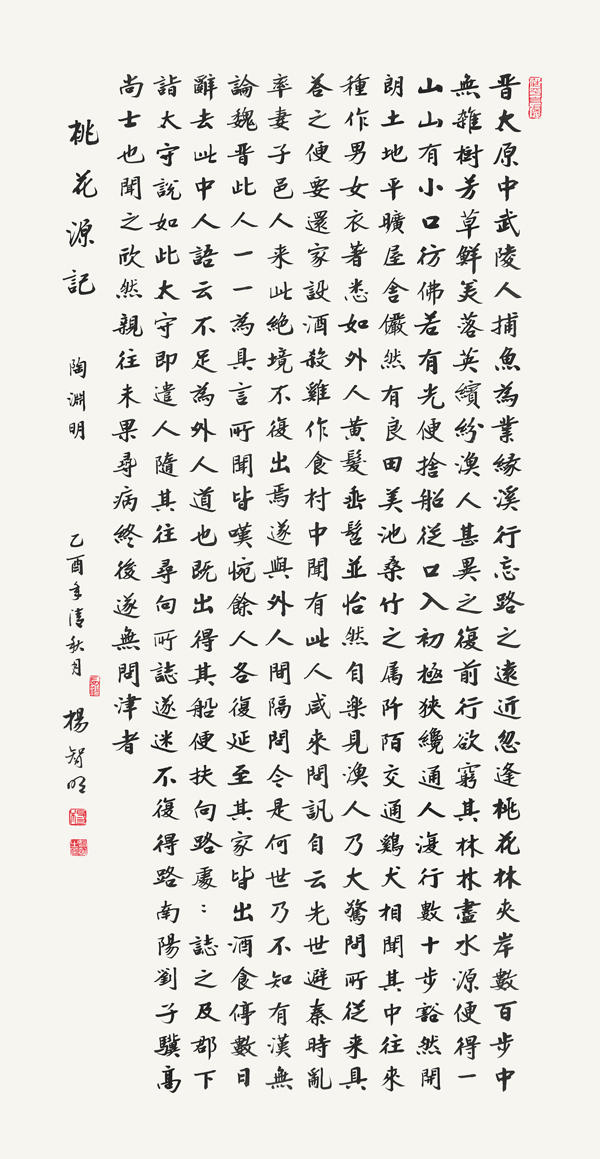 晋太原中武陵人捕魚為業緣溪行忘路之遠近忽逢桃花林夾岸數百步中
無雜樹芳草鮮美落英繽紛漁人甚異之復前行欲窮其林林盡水源便得一
山山有小口彷佛若有光便捨船從口入初極狹纔通人復行數十步豁然開
朗土地平曠屋舍儼然有良田美池桑竹之属阡陌交通鷄犬相聞其中往來
種作男女衣著悉如外人黃髮垂髫並怡然自樂見漁人乃大驚問所從来具
答之便要還家設酒殺雞作食村中聞有此人咸來問訊自云先世避秦時亂
率妻子邑人来此絕境不復出焉遂與外人間隔問今是何世乃不知有漢無
論魏晋此人一一為具言所聞皆嘆惋餘人各復延至其家皆出酒食停數日
辭去此中人語云不足為外人道也既出得其船便扶向路處〻誌之及郡下
詣太守說如此太守即遣人隨其往尋向所誌遂迷不復得路南陽劉子驥高
尚士也聞之欣然親往未果尋病終後遂無問津者
桃花源記 陶淵明 乙酉年清秋月 楊智明